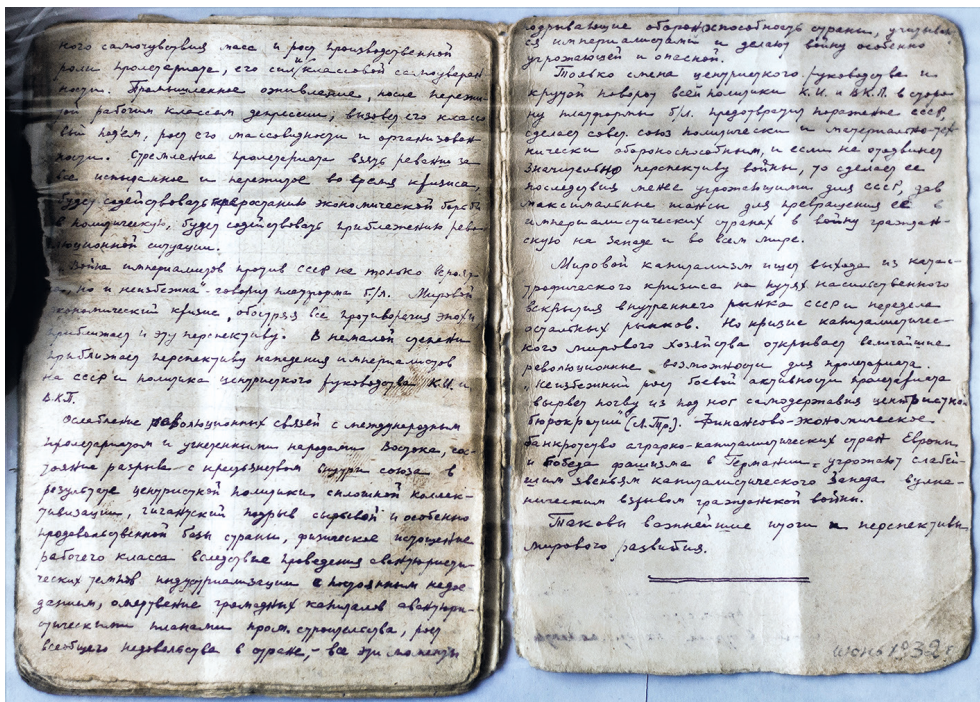 ного самочувствия масс и рост производственной
роли пролетариата, его силы классовой самоуверен
ности. Промышленное оживление, после пережи-
той рабочим классом депрессии, вызовет его классо
вый под'ем, рост его массовидности и организован
ности. Стремление пролетариата взять реванш за
все испытанное и пережитое во время кризиса,
будет содействовать перерастанию экономической борьбы
в политическую, будет содействовать приближению рево
люционной ситуации.
„Война империалистов против СССР не только
но и неизбежна" – говорит платформа б/л. Мировой
экономический кризис, обостряя все противоречия эпохи
приближает и эту перспективу. В немалой степени
приближает перспективу нападения империалистов
на СССР и политика центристского руководства К.И. и
В.К.П.
Ослабление революционных связей с международным
пролетариатом и угнетенными народами Востока, сос-
тояние разрыва с крестьянством внутри союза в
результате центристской политики сплошной коллек-
тивизации, гигантский подрыв сырьевой и особенно
продовольственной базы страны, физическое истощение
рабочего класса вследствие проведения авантюристи-
ческих темпов индустриализации с постоянным недое
данием, омертвение громадных капиталов авантюри-
стическими планами пром. строительства, рост
всеобщего недовольства в стране, – все эти моменты
подрывающие обороноспособность страны, учитываю
ся империалистами и делают войну особенно
угрожающей и опасной.
Только смена центристского руководства и
крутой поворот всей политики К.И. и В.К.П. в сторо-
ну платформы б/л. предотвратит поражение СССР,
сделает совет. союз политически и материально-тех-
нически обороноспособным, и если не отодвинет
значительно перспективу войны, то сделает ее
последствия менее угрожающими для СССР, дав
максимальные шансы для превращения ее в
империалистических странах в войну граждан-
скую на Западе и во всем мире.
Мировой капитализм ищет выхода из катас-
трофического кризиса на путях насильственного
вскрытия внутреннего рынка СССР и передела
остальных рынков. Но кризис капиталистичес-
кого мирового хозяйства открывает величайшие
революционные возможности для пролетариата.
„Неизбежный рост боевой активности пролетариата
вырвет почву из под ног самодержавия центристской
бюрократии" (Л.Тр.). Финансово-экономическое
банкротство аграрно-капиталистических стран Европы
и победа фашизма в Германии, угрожают слабей-
шим звеньям капиталистического Запада вулка-
ническим взрывом гражданской войны.
Таковы важнейшие итоги и перспективы
мирового развития.
июнь 1932 г